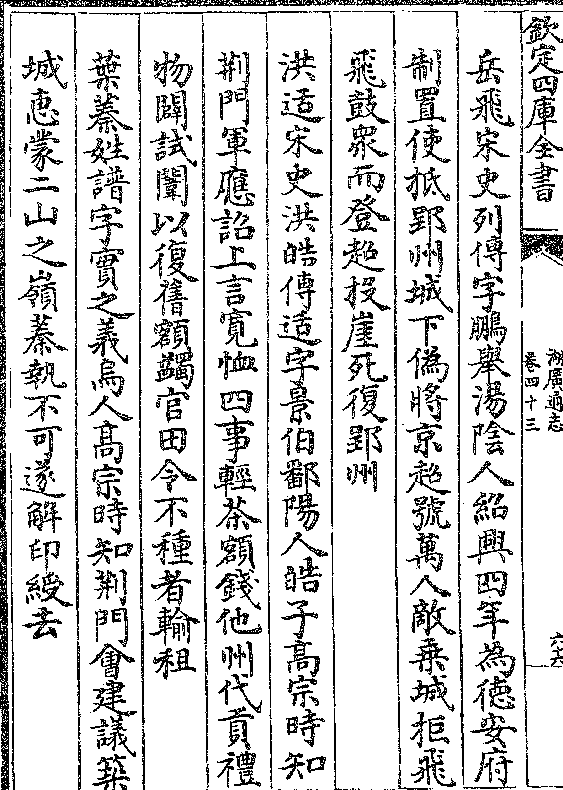 欽定四庫全書
湖廣通志
卷四十三
六六
岳飛宋史列傳字鵬舉湯陰人紹興四年為德安府
制置使抵郢州城下偽將京超號萬人敵乗城拒飛
飛鼓衆而登超投崖死復郢州
洪适宋史洪皓傳适字景伯鄱陽人皓子髙宗時知
荆門軍應詔上言寛恤四事輕茶額錢他州代貢禮
物闢試闈以復舊額蠲官田令不種者輸租
葉蓁姓譜字實之義烏人髙宗時知荆門會建議築
城惠蒙二山之嶺蓁執不可遂解印綬去